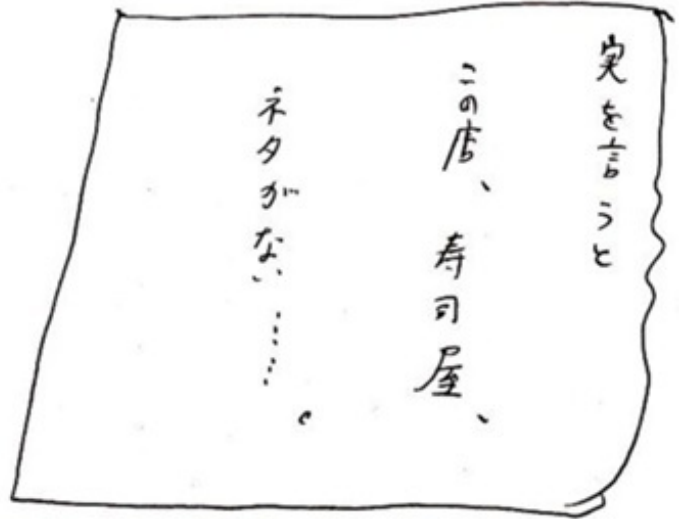 実を言うと
この店、寿司屋、
ネタがない……。